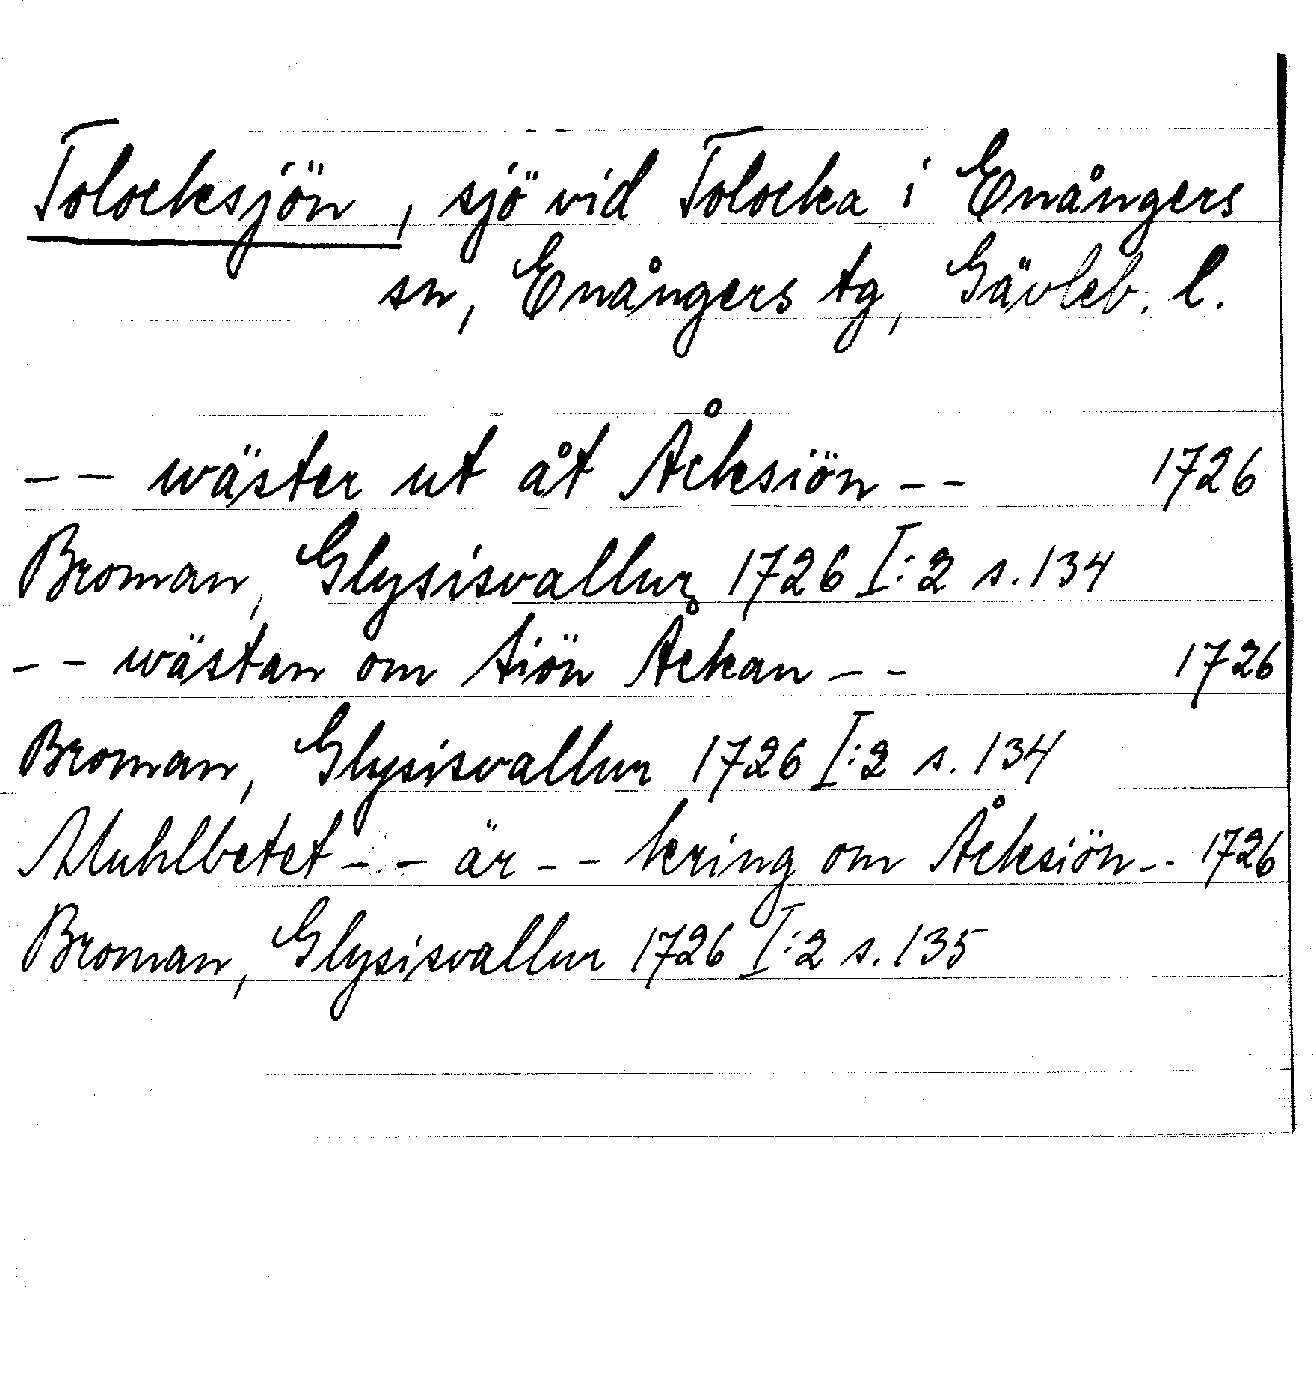 Tolocksjön, sjö vid Tolocka i Enångers
sn, Enångers tg, Gävleb. l.
-- wäster ut åt Åcksiön -- 1726
Broman, Glysisvallur 1726 I:2 s. 134
-- wästan om tiön Åckan -- 1726
Broman, Glysisvallur 1726 I:2 s. 134
Muhlbetet -- är -- kring om Åcksiön -- 1726
Broman, Glysisvallur 1726 I:2 s. 135